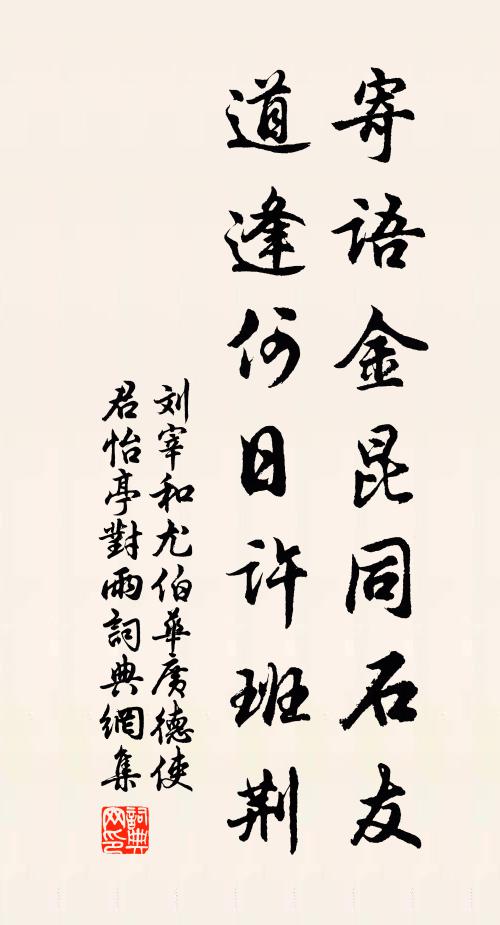 寄语金昆同石友
道逢何日许班荆
刘宰和尤伯華廣德使
君怡亭對雨詞典網集
詞典网印